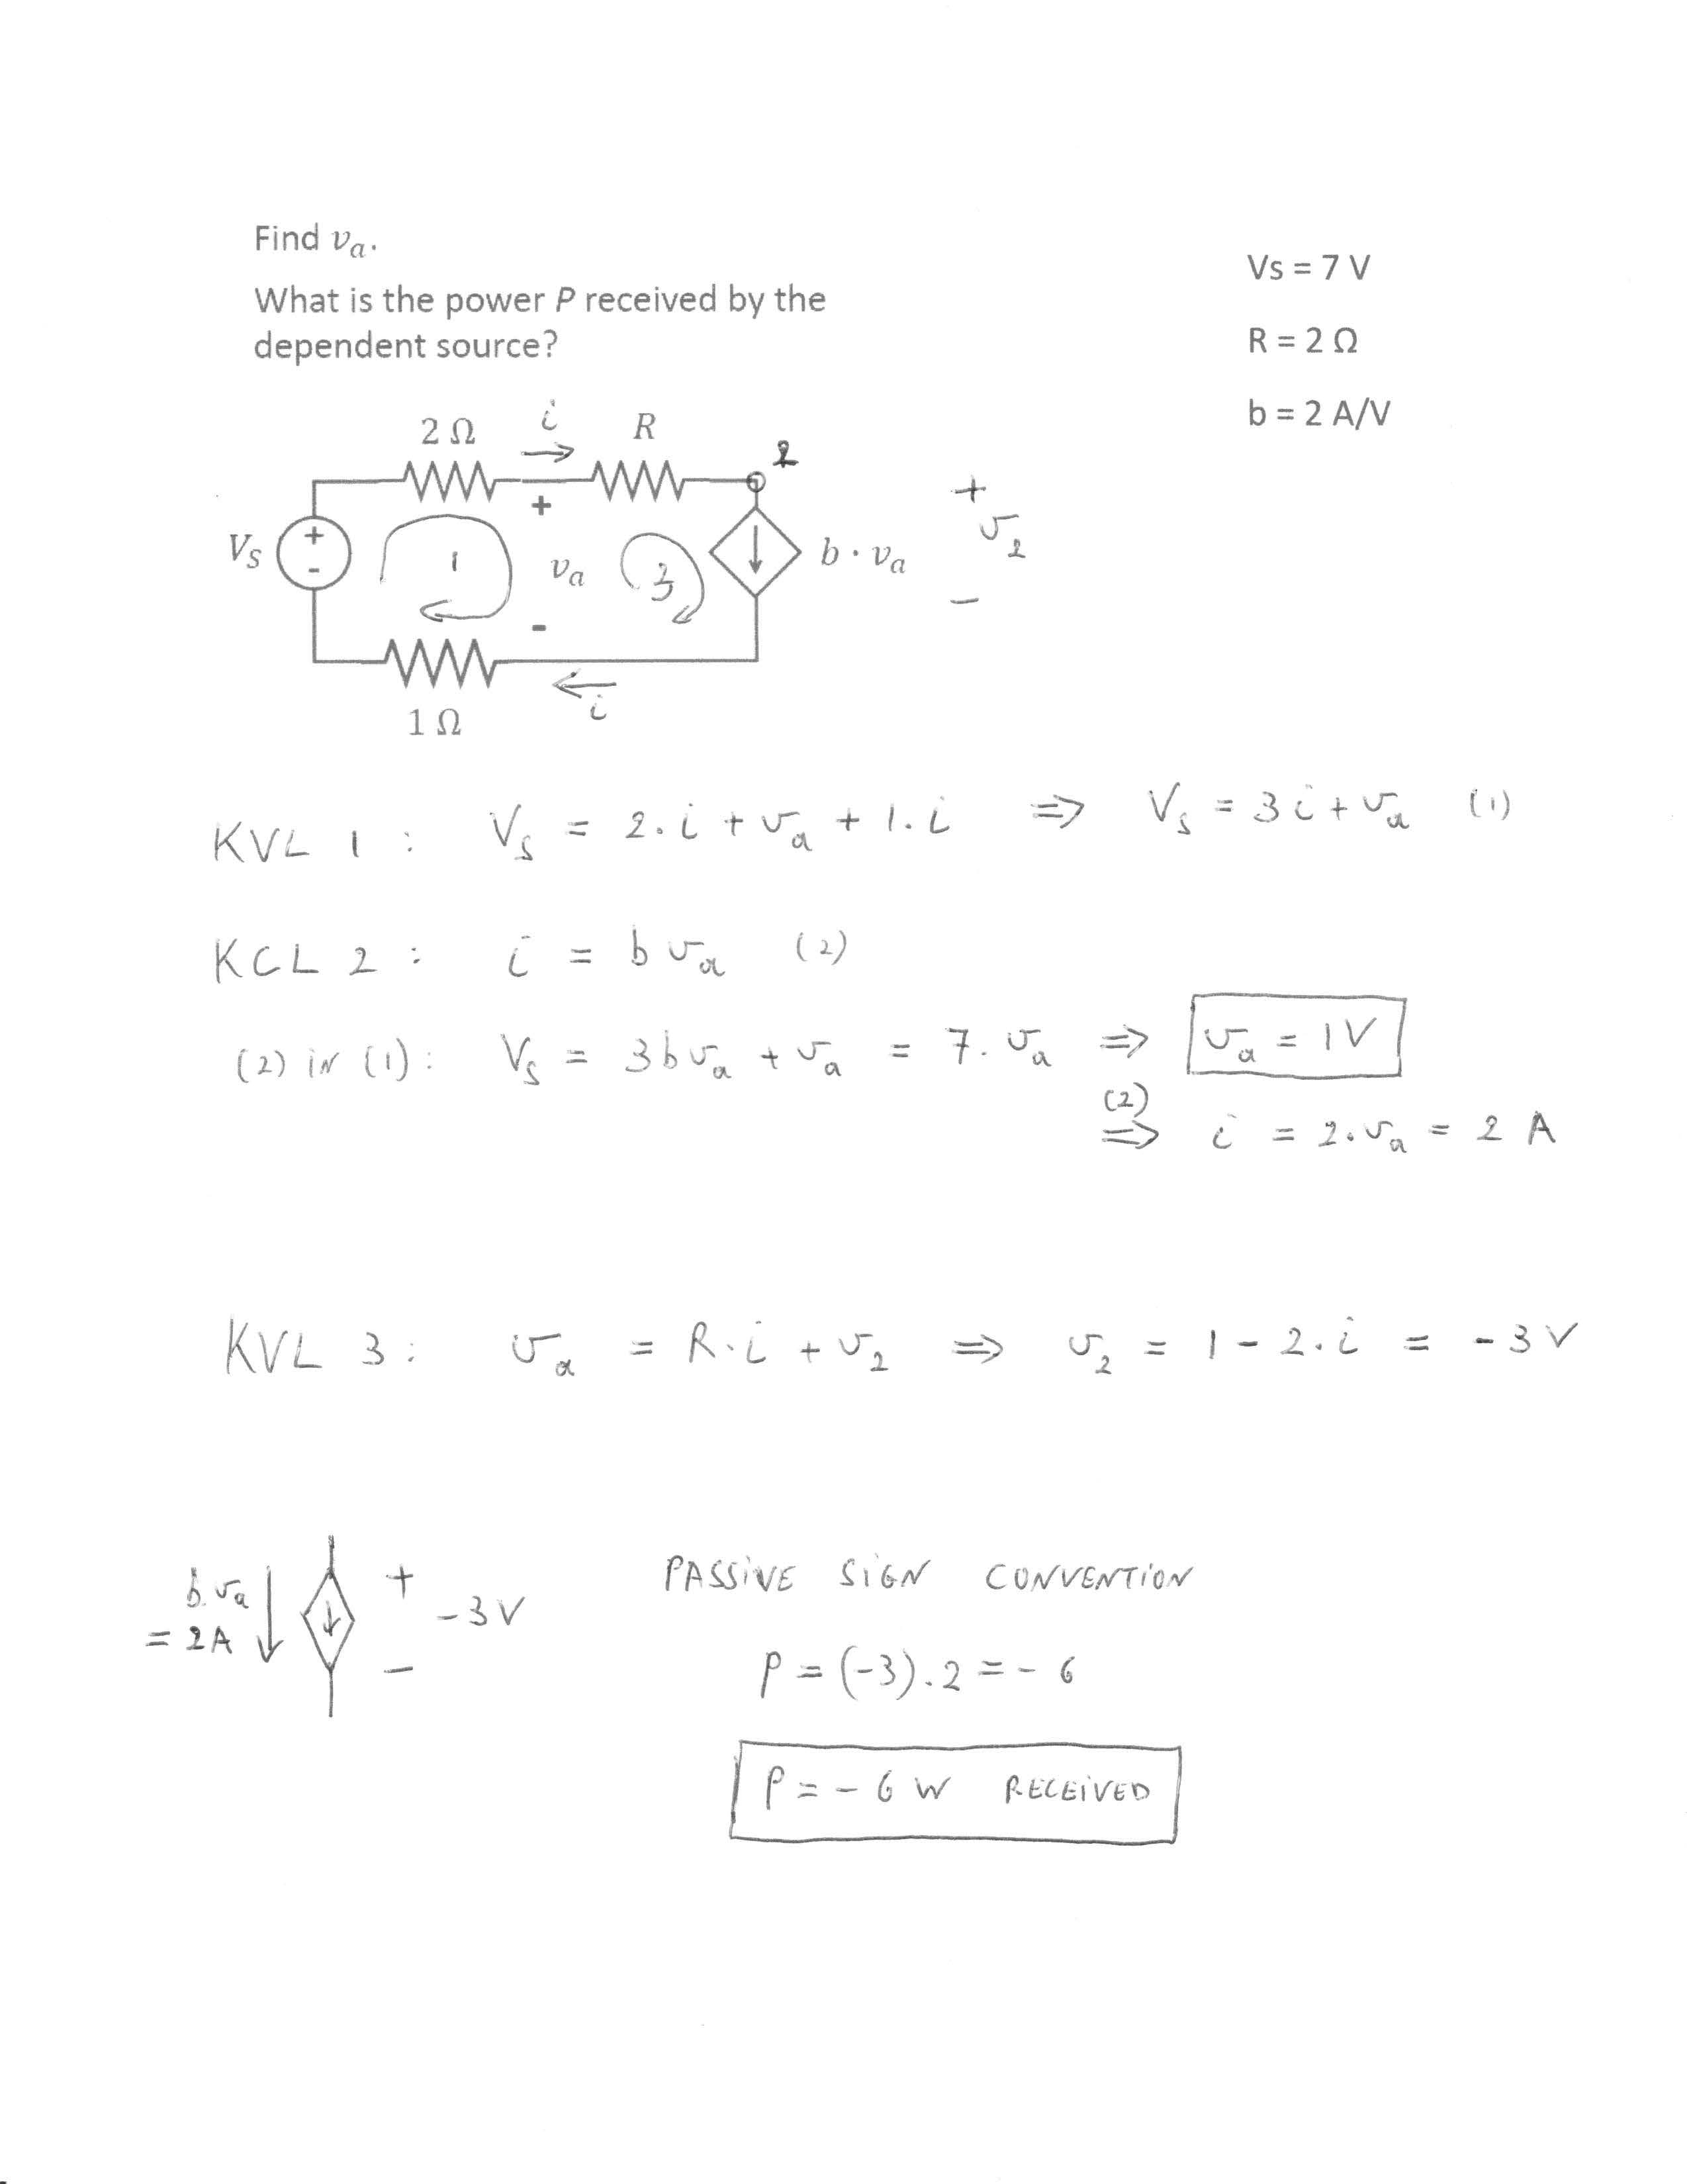 Find vₐ.
Vs = 7 V
What is the power P received by the
dependent source?
R = 2 Ω
b = 2 A/V
2 Ω
i
R
2
+
+
V_S
+
-
1
vₐ
3
b · vₐ
v₂
-
-
i
1 Ω
KVL 1 : V_S = 2.i + vₐ + 1.i ⇒ V_S = 3i + vₐ (1)
KCL 2 : i = b vₐ (2)
(2) in (1) : V_S = 3b vₐ + vₐ = 7. vₐ ⇒ vₐ = 1V
(2)
⇒ i = 2.vₐ = 2 A
KVL 3 : vₐ = R.i + v₂ ⇒ v₂ = 1 - 2.i = -3 V
b.vₐ
= 2A
+
-3 V
-
PASSiVE SiGN CONVENTiON
P = (-3).2 = - 6
P = - 6 W RECEiVED